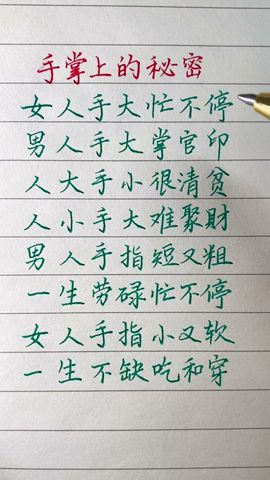 手掌上的秘密
女人手大忙不停
男人手大掌官印
人大手小很清贫
人小手大难聚财
男人手指短又粗
一生劳碌忙不停
女人手指小又软
一生不缺吃和穿